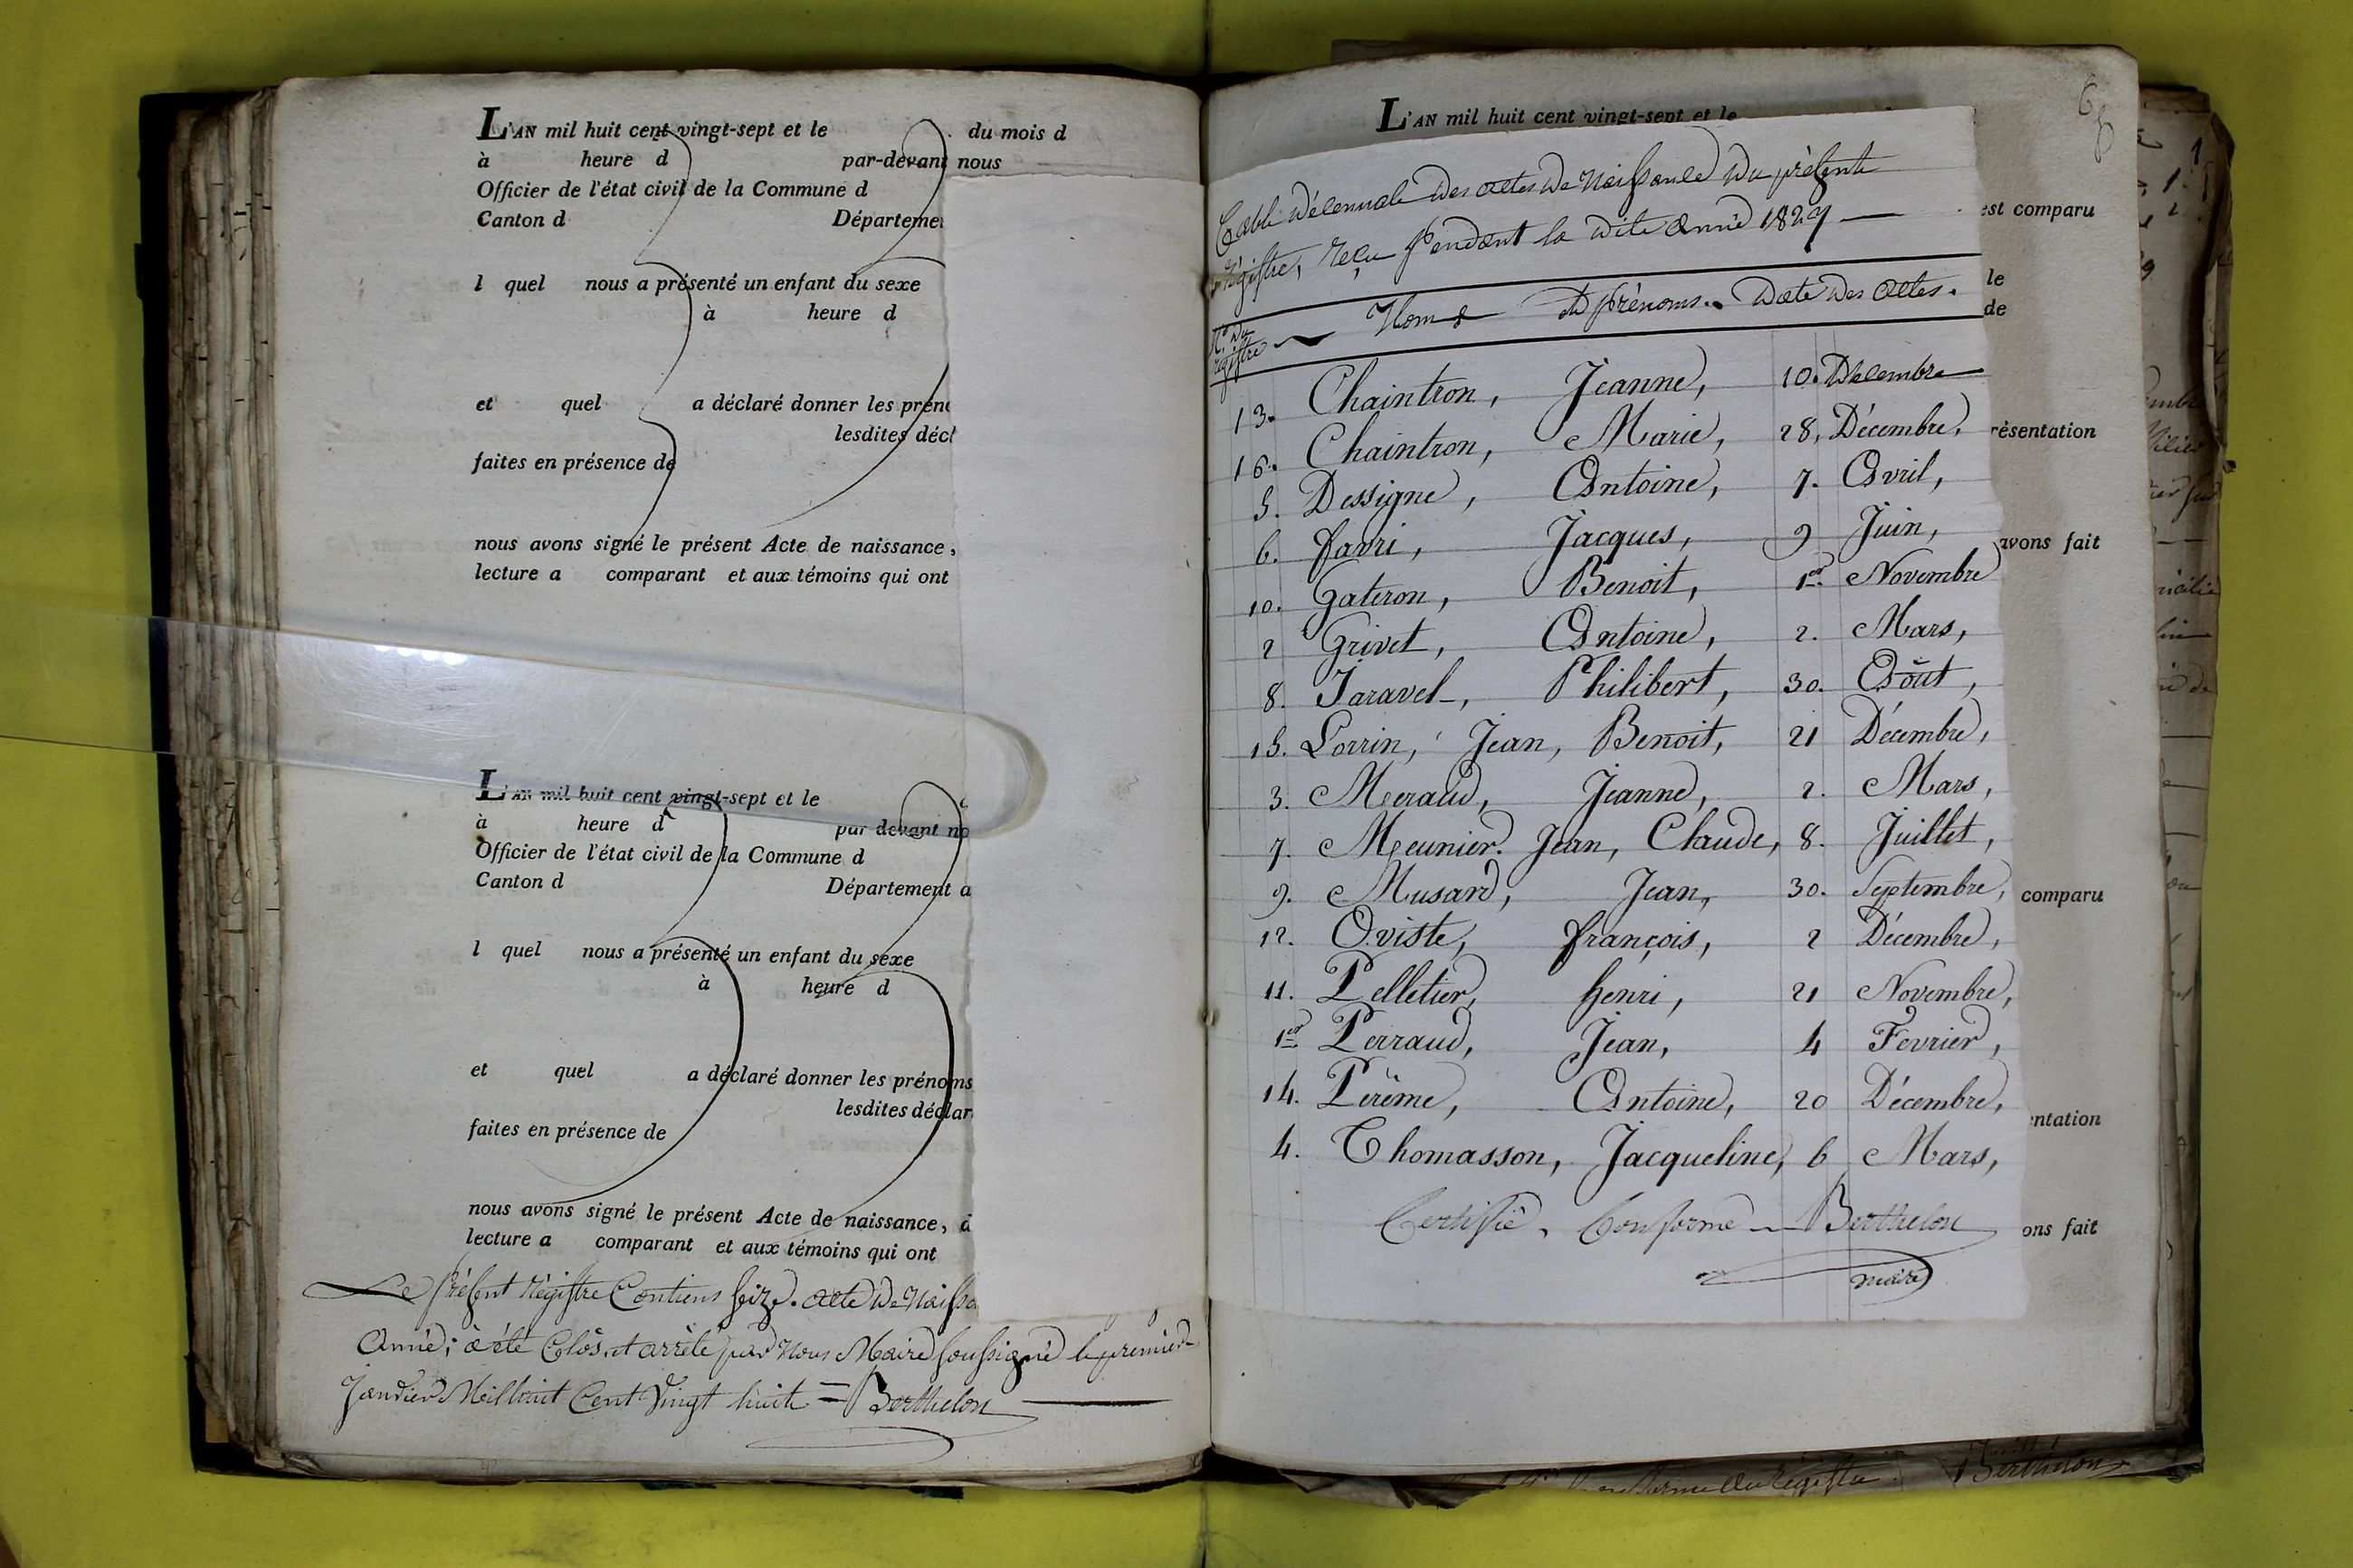 L'AN mil huit cent vingt-sept et le du mois d
à heure d par-devant nous
Officier de l'état civil de la Commune d
Canton d Départeme
l quel nous a présenté un enfant du sexe
à heure d
et quel a déclaré donner les prén
lesdites décl
faites en présence de
nous avons signé le présent Acte de naissance,
lecture a comparant et aux témoins qui ont
L'AN mil huit cent vingt-sept et le
à heure d par devant no
Officier de l'état civil de la Commune d
Canton d Département d
l quel nous a présenté un enfant du sexe
à heure d
et quel a déclaré donner les prénoms
lesdites déclar
faites en présence de
nous avons signé le présent Acte de naissance, à
lecture a comparant et aux témoins qui ont
Le présent Régistre Contiens seize acte de Naissa
Année; à été Clos, et arrêté par Nous Maire soussigné le premier
Janvier Mil huit Cent vingt huit = Berthelon
L'AN mil huit cent vingt-sept et le
Table décennale des actes de Naissance du présente
régistre, reçu pendant la dite Année 1827
est comparu
le
de
N.º du régistre Noms et prénoms. Date des Actes.
13. Chaintron, Jeanne, 10. Décembre
16. Chaintron, Marie, 28, Décembre,
5. Dessigne, Antoine, 7. Avril,
6. favri, Jacques, 9 Juin,
10. Gateron, Benoit, 1er Novembre
2 Grivet, Antoine, 2. Mars,
8. Jaravel, Philibert, 30. Août,
15. Lorrin, Jean, Benoit, 21 Décembre,
3. Meraud, Jeanne, 2. Mars,
7. Meunier. Jean, Claude, 8. Juillet,
9. Musard, Jean, 30. Septembre,
12. Oviste, françois, 2 Décembre,
11. Pelletier, henri, 21 Novembre,
1er Perraud, Jean, 4 Fevrier,
14. Perème, Antoine, 20 Décembre,
4. Thomasson, Jacqueline, 6 Mars,
Certifié, Conforme Berthelon
maire
résentation
avons fait
comparu
entation
ons fait
Berthelon